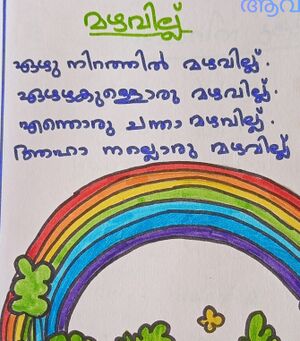 ആവ
മഴവില്ല്
ഏഴു നിറത്തിൽ മഴവില്ല്.
ഏഴഴകുള്ളൊരു മഴവില്ല്.
എന്തൊരു ചന്തം മഴവില്ല്.
ആഹാ നല്ലൊരു മഴവില്ല്